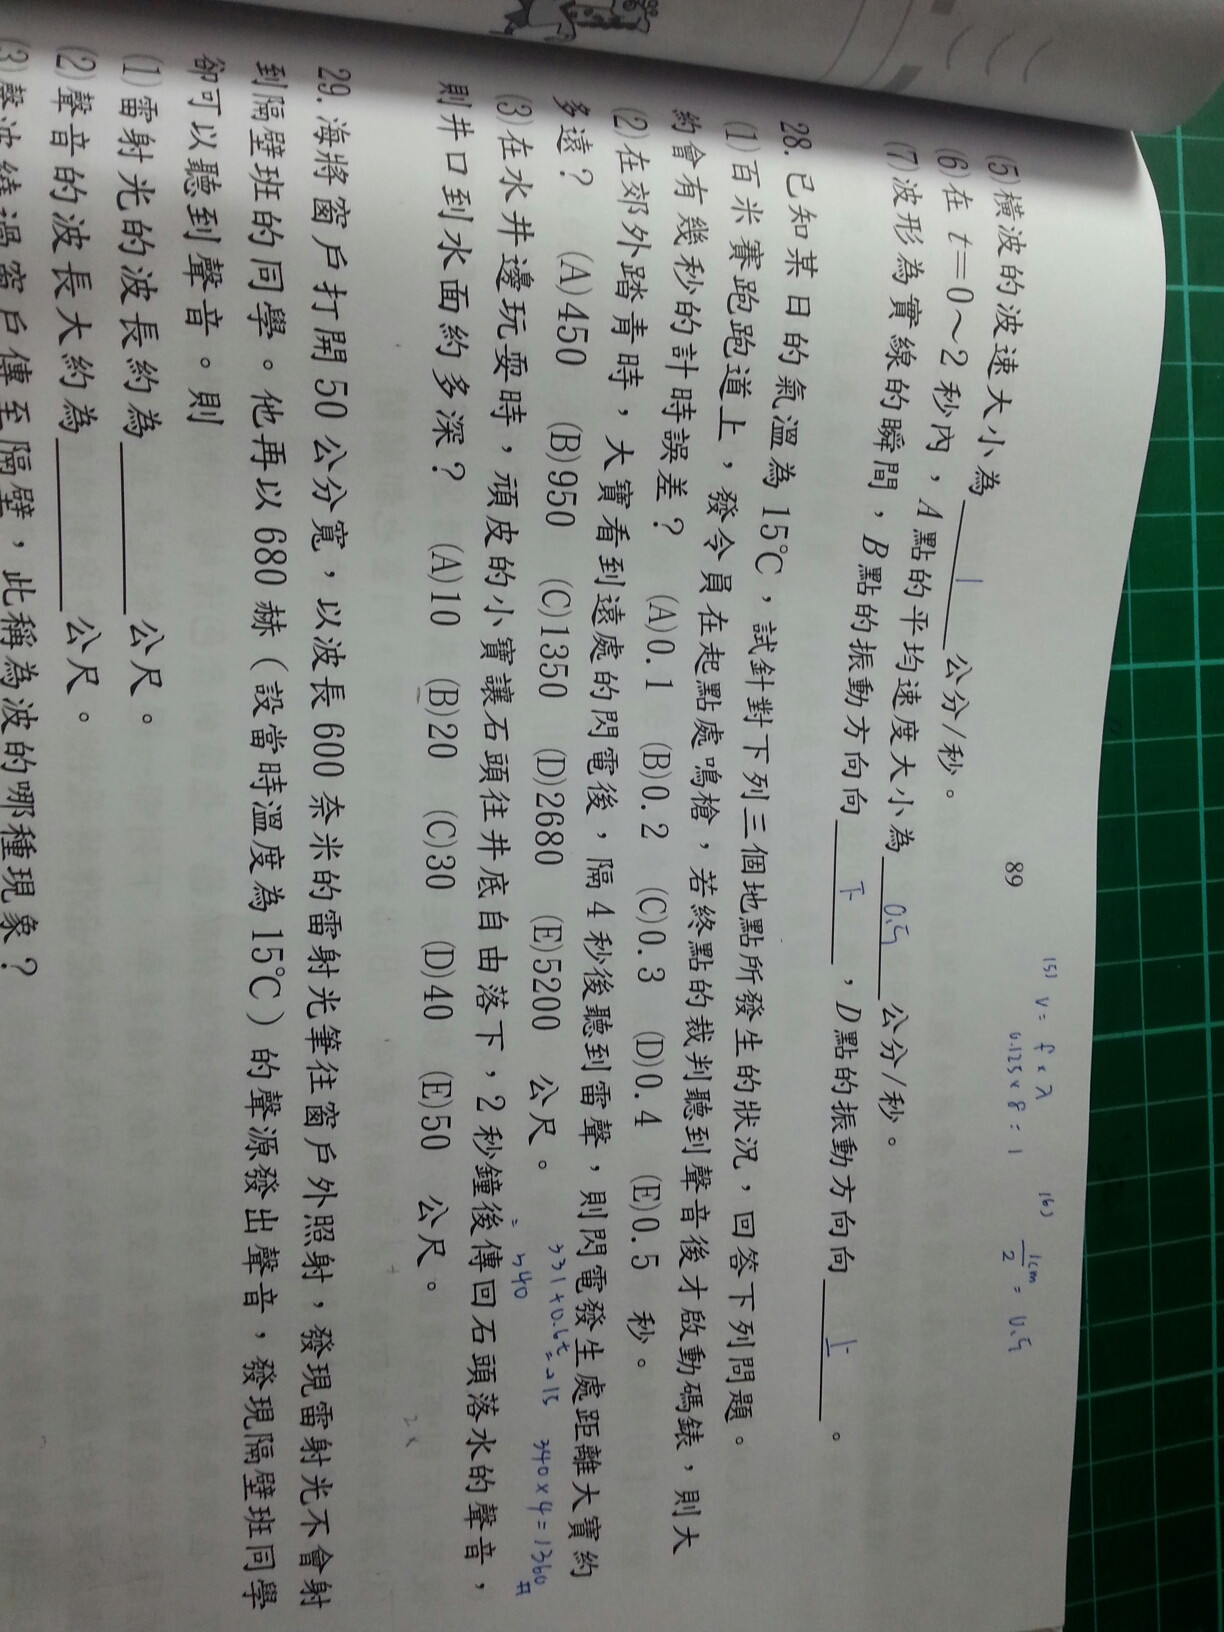 (5)橫波的波速大小為 1 公分/秒。
(6)在 t=0～2 秒內，A 點的平均速度大小為 0.5 公分/秒。
(7)波形為實線的瞬間，B 點的振動方向向 下 ，D 點的振動方向向 上 。
28.已知某日的氣溫為 15℃，試針對下列三個地點所發生的狀況，回答下列問題。
(1)百米賽跑跑道上，發令員在起點處鳴槍，若終點的裁判聽到聲音後才啟動碼錶，則大
約會有幾秒的計時誤差？ (A)0.1 (B)0.2 (C)0.3 (D)0.4 (E)0.5 秒。
(2)在郊外踏青時，大寶看到遠處的閃電後，隔 4 秒後聽到雷聲，則閃電發生處距離大寶約
多遠？ (A)450 (B)950 (C)1350 (D)2680 (E)5200 公尺。
(3)在水井邊玩耍時，頑皮的小寶讓石頭往井底自由落下，2 秒鐘後傳回石頭落水的聲音，
則井口到水面約多深？ (A)10 (B)20 (C)30 (D)40 (E)50 公尺。
29.海將窗戶打開 50 公分寬，以波長 600 奈米的雷射光筆往窗戶外照射，發現雷射光不會射
到隔壁班的同學。他再以 680 赫（設當時溫度為 15℃）的聲源發出聲音，發現隔壁班同學
卻可以聽到聲音。則
(1)雷射光的波長約為 公尺。
(2)聲音的波長大約為 公尺。
(3)聲波繞過窗戶傳至隔壁，此稱為波的哪種現象？
89
(5) v = f × λ
0.125 × 8 = 1
(6) 1cm
2
= 0.5
331+0.6t
= 340
340×4=1360